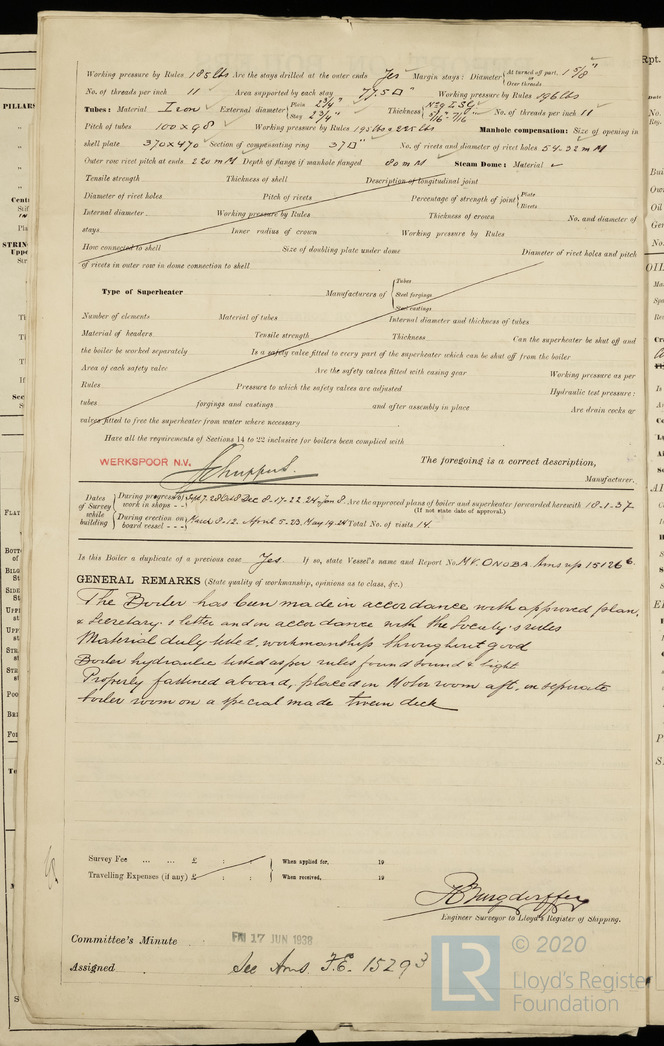 Working pressure by Rules 185 lbs Are the stays drilled at the outer ends Yes Margin stays: Diameter { At turned off part, or Over threads 1 5/8"
No. of threads per inch 11 Area supported by each stay 77.5 □" Working pressure by Rules 196 lbs
Tubes: Material Iron External diameter { Plain 2 3/4" Stay 2 3/4" Thickness { No 9 LSG 5/16" 7/16" No. of threads per inch 11
Pitch of tubes 100 x 98 Working pressure by Rules 195 lbs x 225 lbs Manhole compensation: Size of opening in
shell plate 370 x 470 Section of compensating ring 37 □" No. of rivets and diameter of rivet holes 54-32 mM
Outer row rivet pitch at ends 220 mM Depth of flange if manhole flanged 80 mM Steam Dome: Material
Tensile strength Thickness of shell Description of longitudinal joint
Diameter of rivet holes Pitch of rivets Percentage of strength of joint { Plate Rivets
Internal diameter Working pressure by Rules Thickness of crown No. and diameter of
stays Inner radius of crown Working pressure by Rules
How connected to shell Size of doubling plate under dome Diameter of rivet holes and pitch
of rivets in outer row in dome connection to shell
Type of Superheater Manufacturers of { Tubes Steel forgings Steel castings
Number of elements Material of tubes Internal diameter and thickness of tubes
Material of headers Tensile strength Thickness Can the superheater be shut off and
the boiler be worked separately Is a safety valve fitted to every part of the superheater which can be shut off from the boiler
Area of each safety valve Are the safety valves fitted with easing gear Working pressure as per
Rules Pressure to which the safety valves are adjusted Hydraulic test pressure:
tubes forgings and castings and after assembly in place Are drain cocks or
valves fitted to free the superheater from water where necessary
Have all the requirements of Sections 14 to 22 inclusive for boilers been complied with
WERKSPOOR N.V. The foregoing is a correct description,
Manufacturer.
Dates of Survey while building { During progress of work in shops - - Sept 7. 28 Oct 8 Dec 8-17-22. 24 Jan 8. Are the approved plans of boiler and superheater forwarded herewith 18-1-37
(If not state date of approval.)
During erection on board vessel - - - March 8-12. April 5-23, May 19-24 Total No. of visits 14.
Is this Boiler a duplicate of a previous case Yes. If so, state Vessel's name and Report No. M.V. ONOBA. Ams up 15126 e.
GENERAL REMARKS (State quality of workmanship, opinions as to class, &c.)
The Boiler has been made in accordance with approved plan,
& Secretary's letter and in accordance with the Society's rules
Material duly tested, workmanship throughout good
Boiler hydraulic tested as per rules found sound & tight
Properly fastened aboard, placed in Motor room aft, in seperate
boiler room on a special made tween deck
Survey Fee ... ... £ : : When applied for, 19
Travelling Expenses (if any) £ : : When received, 19
Engineer Surveyor to Lloyd's Register of Shipping.
Committee's Minute FRI 17 JUN 1938
Assigned See Ams. F.E. 15293
LR © 2020
Lloyd's Register
Foundation